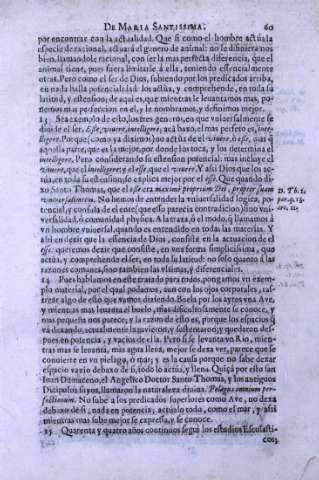 DE MARIA SANTISSIMA. 60
por encontrar con la actualidad. Que si como el hombre actúa la
especie de racional, actuará el genero de animal: no le difiniera nos
bien, llamandole racional, con ser la mas perfecta diferencia, que el
animal tiene, pues fuera limitarle à ella, teniendo essencialmente
otras. Pero como el ser de Dios, subiendo por los predicados arriba,
en nada halla potencialidad: los actúa, y comprehende, en toda su
latitud, y estension; de aqui es, que mientras le levantamos mas, po-
demos mas perfeccion en el, y le nombramos, y definimos mejor.
13 Sea exemplo de esto, los tres generos, en que vniversalmente se
divide el ser. Esse, vivere, intelligere; acà baxo, el mas perfeto es, intel-
ligere. Porque (como ya diximos) no actua de el vivere, ò esse, mas q
aquella parte, que es la mejor, por donde las toca, y los determina el
intelligere. Pero considerando su estension potencial: mas incluye el
vivere, que el intelligere; y el esse, que el vivere. Y assi Dios que los ac-
tua, en toda su estension; se explica mejor por el esse. Que quando di-
xo Santo Thomas, que el esse era maximè proprium Dei, propter suam
vniversalitatem. No hemos de entender la vniversalidad logica, po-
tencial, y confusa de el ente (que esso parecia contradicion) sino vni-
versalidad, ò comunidad physica. A la traza, ò al modo, q̃ llamamos à
vn hombre vniversal, quando es entendido en todas las materias. Y
assi en dezir que la essencia de Dios, consiste en la actuacion de el
esse: queremos dezir que consiste, en vna forma simplicissima, que
actúa, y comprehende el ser, en toda su latitud: no solo quanto à las
razones comunes, sino tambien las vltimas, y diferenciales.
D. Th. 1.
par. q. 13.
art. 11.
14 Pues hablamos en este tratado para todos, pongamos vn exem-
plo material, por el qual podamos, aun con los ojos corporales, ras-
trear algo de esto que vamos diziendo. Buela por los ayres vna Ave,
y mientras mas levanta el buelo, mas dificultosamente se conoce, y
mas pequeña nos parece; y la razon de esso es, porque los espacios q̃
va dexando, actualmente la tuvieron, y sustentaron; y quedaron des-
pues en potencia, y vacios de ella. Pero si se levanta vn Rio, mien-
tras mas se levanta, mas agua lleva, mejor se dexa ver, parece que se
convierte en vn pielago, ò mar; y es la causa porque no sabe dexar
espacio vacio debaxo de sì, todo lo actúa, y llena. Quiçà por esto san
Ioan Damaceno, el Angelico Doctor Santo Thomas, y los antiguos
Discipulos suyos, llamaron la naturaleza divina: Pelagus omnium per-
fectionum. No sube à los predicados superiores como Ave, no dexa
debaxo de sì, nada en potencia; actúalo todo, como el mar, y assi
mientras mas sube mejor se expressa, y se conoce.
15 Quarenta y quatro años continuos segui los estudios Escolasti-
cos;